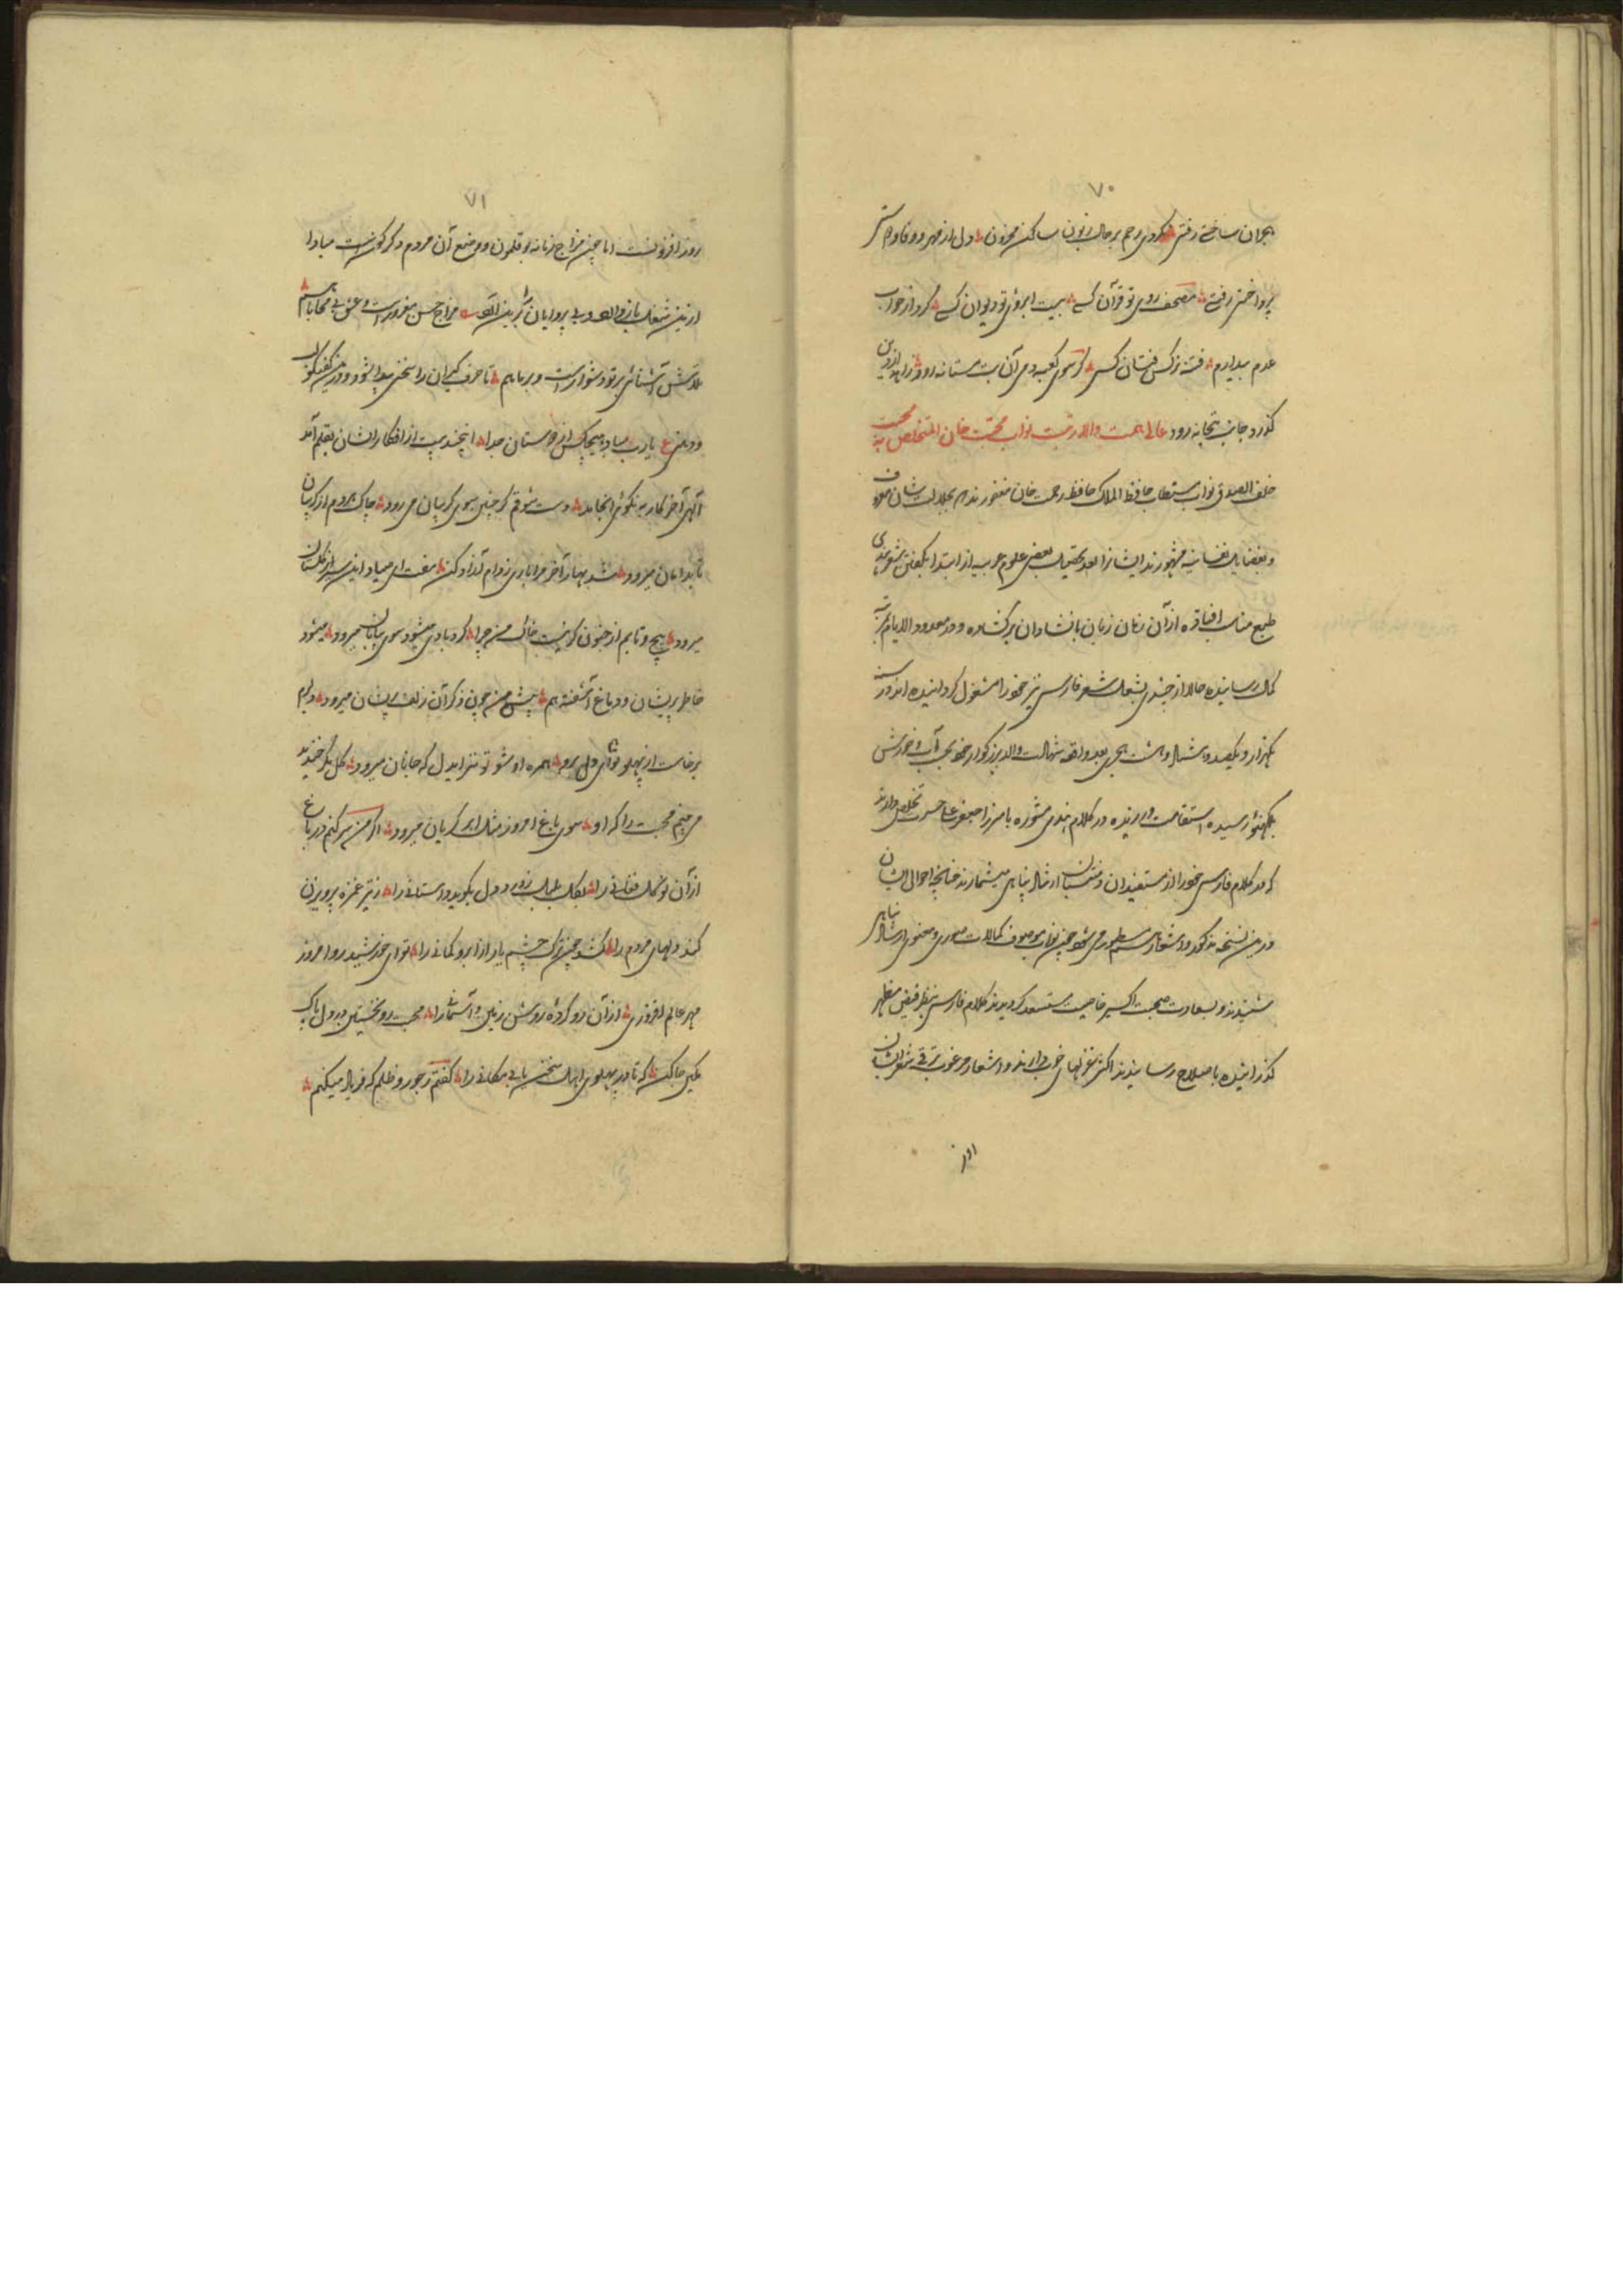 ۷۰
هجران ساختے رفتی نکردی رحم بر حال زبون ساکن محزون دل از مهر و وفا
پرداختی رفتی مصحف روی تو قرآن کسے بیت ابروی تو دیوان کسے کرد از خواب
عدم بیدارم فتنه نرکس فتان کسی گر سوی کعبه دمی آن بت مستانه رود زاهد از دین
گذرد جانب بتخانه رود عالی همت والا رتبت نواب محبت خان المتخلص به محبت
خلف الصدق نواب مستطاب حافظ الملک حافظ رحمت خان مغفورند به جلالت شان معروف
و بفضایل نفسانیه مشهورند ایشان را بعد تحصیل بعضی علوم عربیه از ابتدا بگفتن شعر هندی
طبع مناسب افتاده از آن زمان زبان بانشاد آن برکشاده و در معدود الایام بمرتبه
کمال رسانیده حالا از چندی بشغل شعر فارسی نیز خود را مشغول کردانیده اند در سنه
یکهزار و یکصد و هشتاد و هشت هجری بعد واقعه شهادت والد بزرکوار خود بجذب آب و خورش
بلکهنؤ رسیده استقامت ورزیده در کلام هندی مشوره با میرزا جعفر علی حسرت تخلص دارند
که در کلام فارسی خود را از مستفیدان و منتسبان ارشاد پناهی میشمارند چنانچه احوال ایشان
درین نسخه مذکور و اشعارش مسطور می شود چون نواب موصوف کمالات صوری و معنوی ارشاد پناهی
شنیدند و بسعادت صحبت اکسیر خاصیت مستسعد کردیدند کلام فارسی بنظر فیض مظهر
گذرانیده باصلاح رسانیدند اکثر غزلهای خوب دارند و اشعار مرغوب ترقی شعر ایشان
روز
۷۱
روز افزونست اما چون مزاج زمانه بوقلمون و وضع آن مردم دگرگونست مبادا
ازین شغل باز والعه و بی پروایان مزاج حسن مغرورست و عشق بی محابا هم
تلاش آشنائی بر تو دشوارست و بر ما هم تا حرف گیران را سخنی پیدا نشود و درین گفتگو
و دعای ع یارب مباد هیچکس از دوستان جدا اینچند بیت از افکار ایشان بقلم آمد
الهی آخر کار به نکوئی انجامد دست شوقم گر چنین سوی گریبان می رود چاک هر دم از گریبان
تا بدامان میرود شد بهار آخر مرا باری ز دام آزاد کن مفت ای صیاد این سیر گلستان
میرود پیچ و تابم از جنون گر نیست خاک من چرا گردبادی میشود سوی بیابان میرود میشود
خاطر پریشان و دماغ آشفته هم پیش من چون ذکر آن زلف پریشان میرود دلبرم
برخاست از پهلو تو ای دل برو همره او شو تو نیز ایدل که جانان میرود گل بگر خندید
می بینم محبت را که او سوی باغ امروز مثل ابر گریان میرود اگر من سر کنم در باغ
از آن نو گل فغانی را بگل بلبل ز درد دل بگوید داستانی را ز تیر غمزه پرویزن
کند دلهای مردم را کشد چون ترک چشم یار از ابرو کمانی را تو ای خورشید رو امروز
مهر عالم افروزی از آن رو کرده روشن زمین و آسمانی را محبت رو نخستین در دل پاک
مکین جا کن که تا در پهلوی اهل سخن یابی مکانی را گفتم ز جور و ظلم که فریاد میکنم